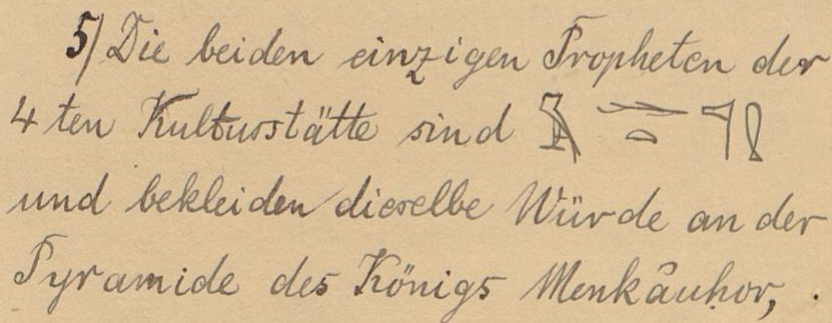 5) Die beiden einzigen Propheten der
4ten Kultusstätte sind
und bekleiden dieselbe Würde an der
Pyramide des Königs Menkâuhor,